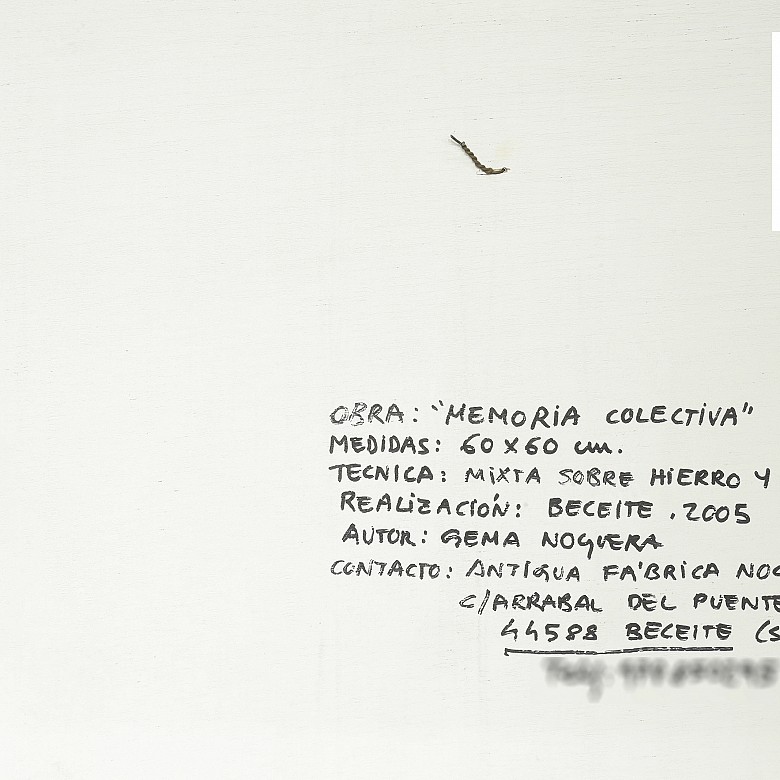 OBRA: "MEMORIA COLECTIVA"
MEDIDAS: 60 X 60 cm.
TECNICA: MIXTA SOBRE HIERRO Y
REALIZACIÓN: BECEITE . 2005
AUTOR: GEMA NOGUERA
CONTACTO: ANTIGUA FÁBRICA NOG
C/ARRABAL DEL PUENTE
44588 BECEITE (S